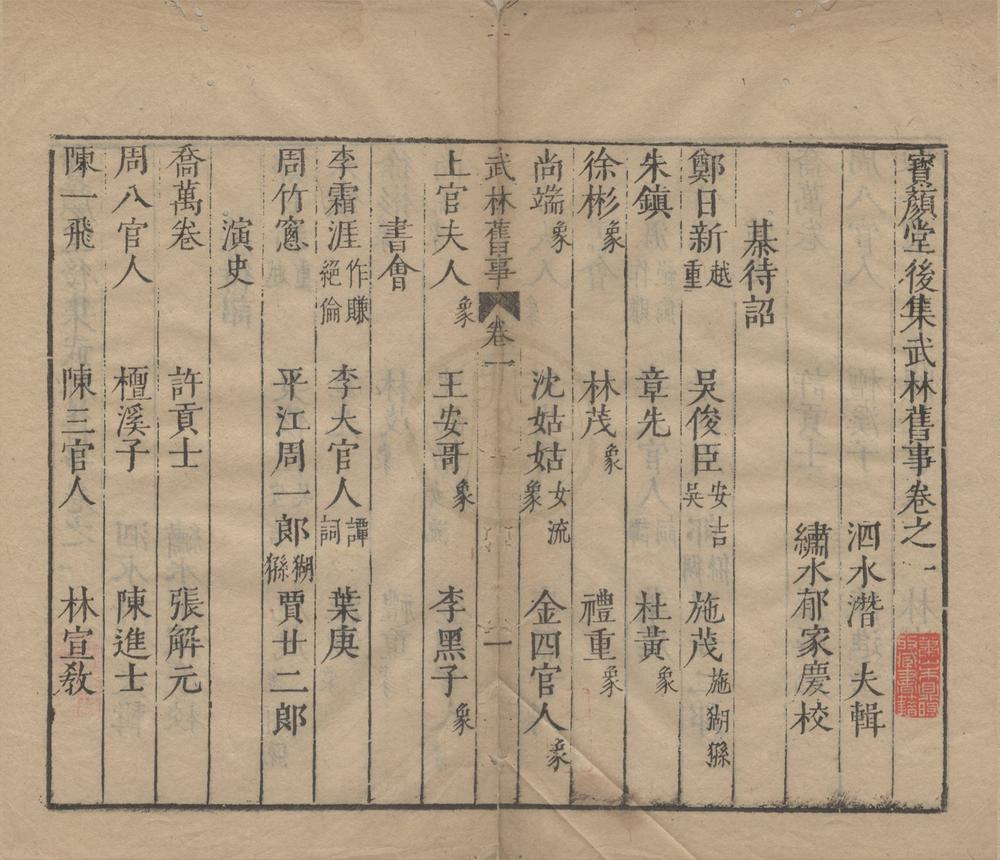 寶顏堂後集武林舊事卷之一
泗水潛 夫輯
繡水郁家慶校
棊待詔
鄭日新越重 吳俊臣安吉吳 施茂施猢猻
朱鎮 章先 杜黃象
徐彬象 林茂象 禮重象
尚端象 沈姑姑女流象 金四官人象
武林舊事 卷一 一
上官夫人象 王安哥象 李黑子象
書會
李霜涯作賺絕倫 李大官人譚詞 葉庚
周竹窻 平江周一郎猢猻 賈廿二郎
演史
喬萬卷 許貢士 張解元
周八官人 檀溪子 陳進士
陳一飛 陳三官人 林宣敎